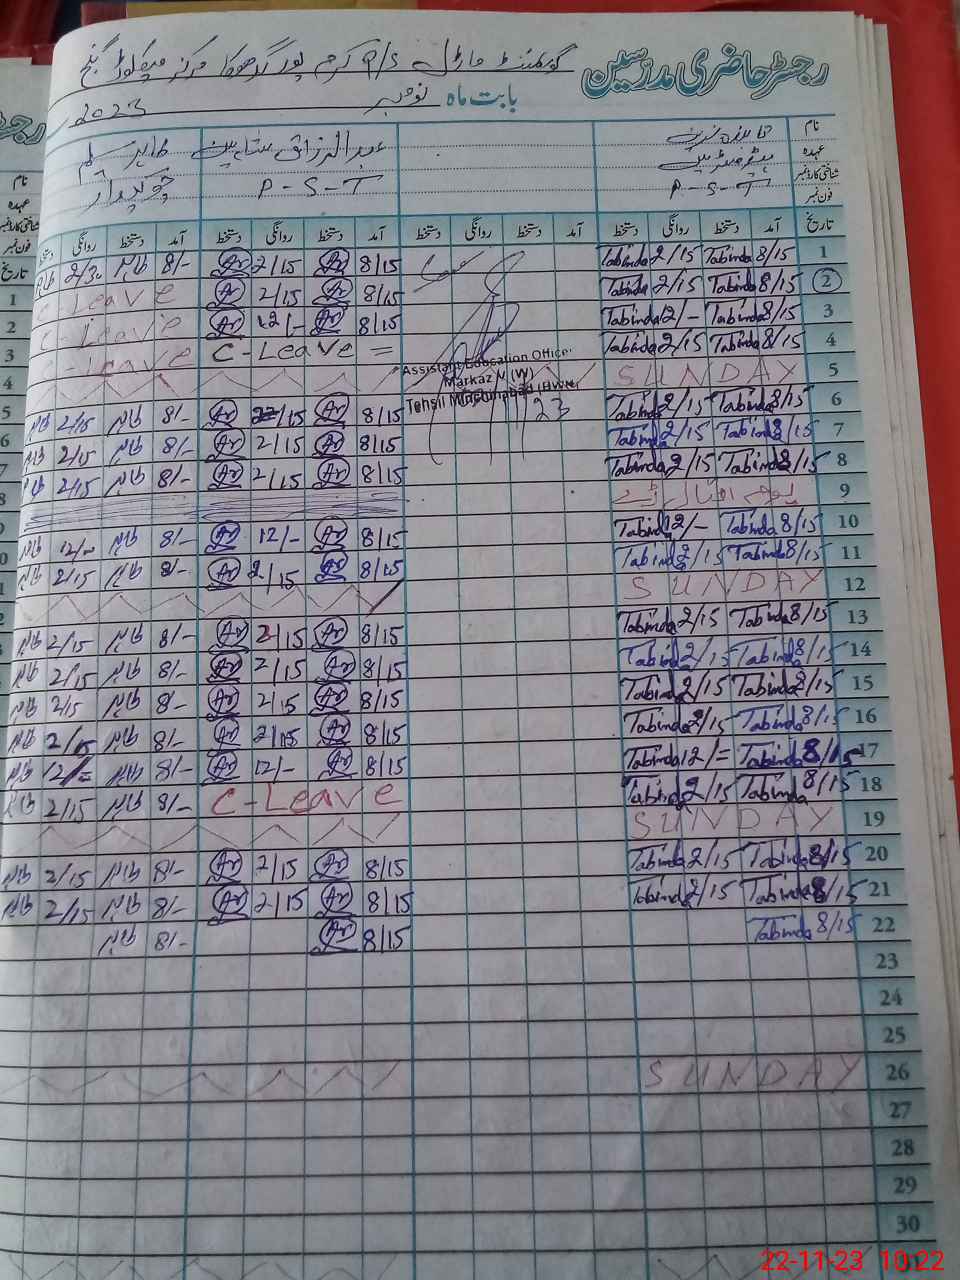 رجسٹر حاضری مدرسین
گورنمنٹ ماڈل P/S کرم پور گدھوکا مرکز میکلوڈ گنج
بابت ماہ نومبر 2023
نام تابندہ عبدالرزاق شاہین طاہر سلیم
عہدہ ہیڈمسٹریس
شناختی کارڈ نمبر P-S-T P-S-T چوکیدار
فون نمبر
تاریخ آمد دستخط روانگی دستخط آمد دستخط روانگی دستخط آمد دستخط روانگی دستخط آمد دستخط روانگی دستخط
1 8/15 Tabinda 2/15 Tabinda 8/15 Ar 2/15 Ar 8/- طاہر 2/30 طاہر
2 8/15 Tabinda 2/15 Tabinda 8/15 Ar 2/15 Ar C-Leave
3 8/15 Tabinda 12/- Tabinda 8/15 Ar 12/- Ar C-Leave
4 8/15 Tabinda 2/15 Tabinda C-Leave = C-Leave
Assistant Education Officer
Markaz V (W)
Tehsil Minchinabad (BWN)
5 SUNDAY
6 8/15 Tabinda 2/15 Tabinda 8/15 Ar 2/15 Ar 8/- طاہر 2/15 طاہر
7 8/15 Tabinda 2/15 Tabinda 8/15 Ar 2/15 Ar 8/- طاہر 2/15 طاہر
8 8/15 Tabinda 2/15 Tabinda 8/15 Ar 2/15 Ar 8/- طاہر 2/15 طاہر
9 یوم اقبال ڈے
10 8/15 Tabinda 12/- Tabinda 8/15 Ar 12/- Ar 8/- طاہر 12/- طاہر
11 8/15 Tabinda 2/15 Tabinda 8/15 Ar 2/15 Ar 8/- طاہر 2/15 طاہر
12 SUNDAY
13 8/15 Tabinda 2/15 Tabinda 8/15 Ar 2/15 Ar 8/- طاہر 2/15 طاہر
14 8/15 Tabinda 2/15 Tabinda 8/15 Ar 2/15 Ar 8/- طاہر 2/15 طاہر
15 8/15 Tabinda 2/15 Tabinda 8/15 Ar 2/15 Ar 8/- طاہر 2/15 طاہر
16 8/15 Tabinda 2/15 Tabinda 8/15 Ar 2/15 Ar 8/- طاہر 2/15 طاہر
17 8/15 Tabinda 12/= Tabinda 8/15 Ar 12/- Ar 8/- طاہر 12/= طاہر
18 8/15 Tabinda 2/15 Tabinda C-Leave 8/- طاہر 2/15 طاہر
19 SUNDAY
20 8/15 Tabinda 2/15 Tabinda 8/15 Ar 2/15 Ar 8/- طاہر 2/15 طاہر
21 8/15 Tabinda 2/15 Tabinda 8/15 Ar 2/15 Ar 8/- طاہر 2/15 طاہر
22 8/15 Tabinda 8/15 Ar 8/- طاہر
23
24
25
26 SUNDAY
27
28
29
30
22-11-23 10:22